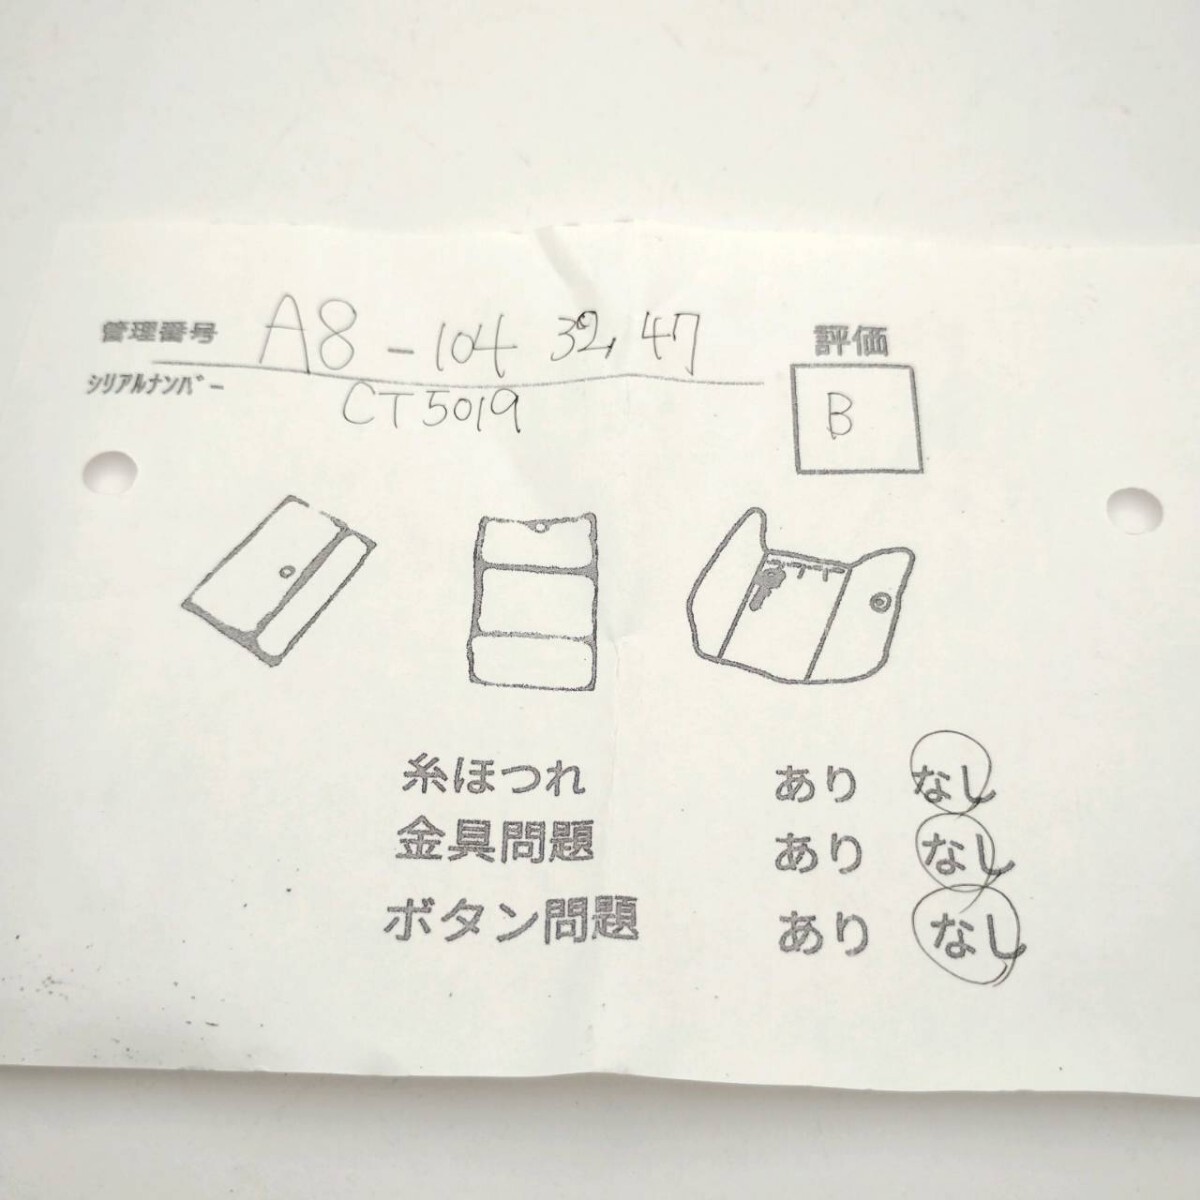 管理番号 A8-104 32,47
シリアルナンバー CT5019
評価
B
糸ほつれ あり なし
金具問題 あり なし
ボタン問題 あり なし